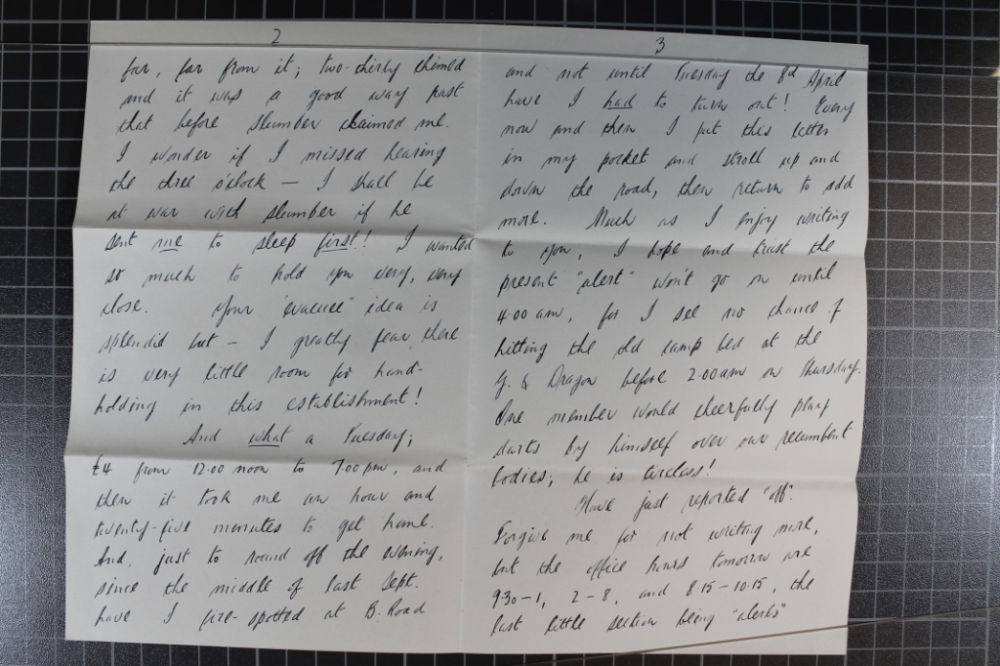 2
far, far from it; two-thirty chimed
and it was a good way past
that before slumber claimed me.
I wonder if I missed hearing
the three o'clock — I shall be
at war with slumber if he
sent me to sleep first! I wanted
so much to hold you very, very
close. Your "evacuee" idea is
splendid but — I greatly fear there
is very little room for hand-
holding in this establishment!
And what a Tuesday;
£4 from 12.00 noon to 7.00 pm, and
then it took me an hour and
twenty-five minutes to get home.
And, just to round off the evening,
since the middle of last Sept.
have I fire-spotted at B. Road
3
and not until Tuesday the 8th April
have I had to turn out! Every
now and then I put this letter
in my pocket and stroll up and
down the road, then return to add
more. Much as I enjoy writing
to you, I hope and trust the
present "alert" won't go on until
4.00 am, for I see no chance of
hitting the old camp bed at the
G. & Dragon before 2.00 am on Thursday.
One member would cheerfully play
darts by himself over our recumbent
bodies; he is tireless!
Have just reported "off".
Forgive me for not writing more,
but the office hours tomorrow are
9.30-1, 2-8, and 8.15-10.15, the
last little section being "alerts"